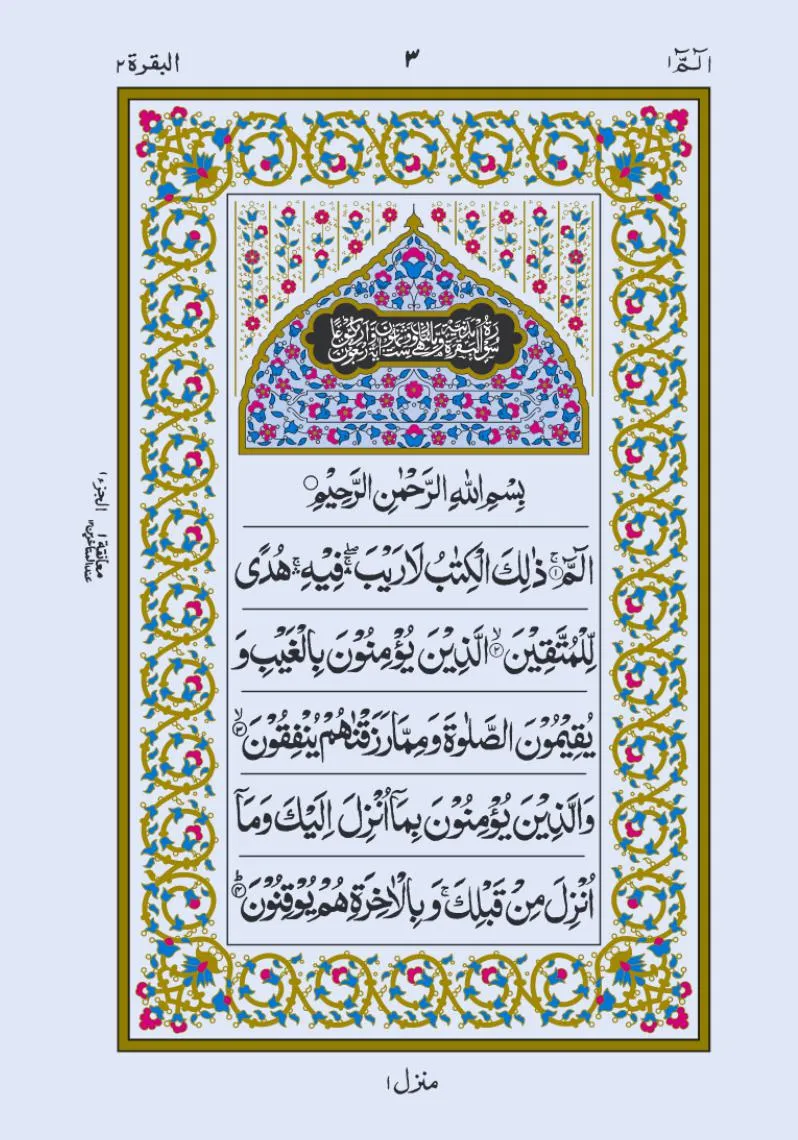 الٓـمّٓ ١
٣
البقرة ٢
سُوْرَةُ الْبَقَرَةِ مَدَنِيَّةٌ وَّهِيَ مِائَتَانِ وَسِتٌّ وَّثَمَانُوْنَ اٰيَةً وَّاَرْبَعُوْنَ رُكُوْعًا
بِسْمِ اللهِ الرَّحْمٰنِ الرَّحِيْمِ ○
الٓمّٓ ۚ﴿١﴾ ذٰلِكَ الْكِتٰبُ لَا رَيْبَ ۛۖۚ فِيْهِ ۛۚ هُدًى
لِّلْمُتَّقِيْنَ ۙ﴿٢﴾ الَّذِيْنَ يُؤْمِنُوْنَ بِالْغَيْبِ وَ
يُقِيْمُوْنَ الصَّلٰوةَ وَمِمَّا رَزَقْنٰهُمْ يُنْفِقُوْنَ ۙ﴿٣﴾
وَالَّذِيْنَ يُؤْمِنُوْنَ بِمَآ اُنْزِلَ اِلَيْكَ وَمَآ
اُنْزِلَ مِنْ قَبْلِكَ ۚ وَ بِالْاٰخِرَةِ هُمْ يُوْقِنُوْنَ ؕ﴿٤﴾
الجزء ١
معانقة ١
عند المتاخرين ١٢
منزل ١